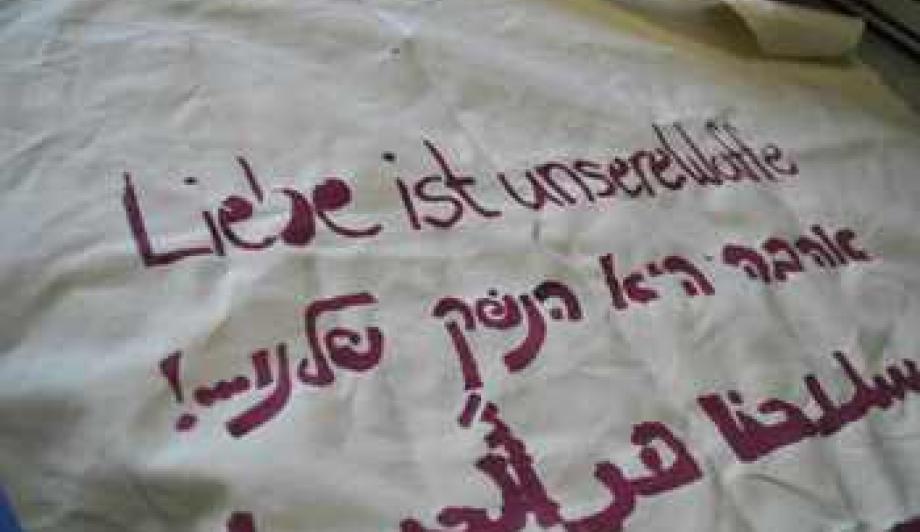 Liebe ist unsere Waffe
אהבה היא הנשק שלנו...!
سلاحنا هو